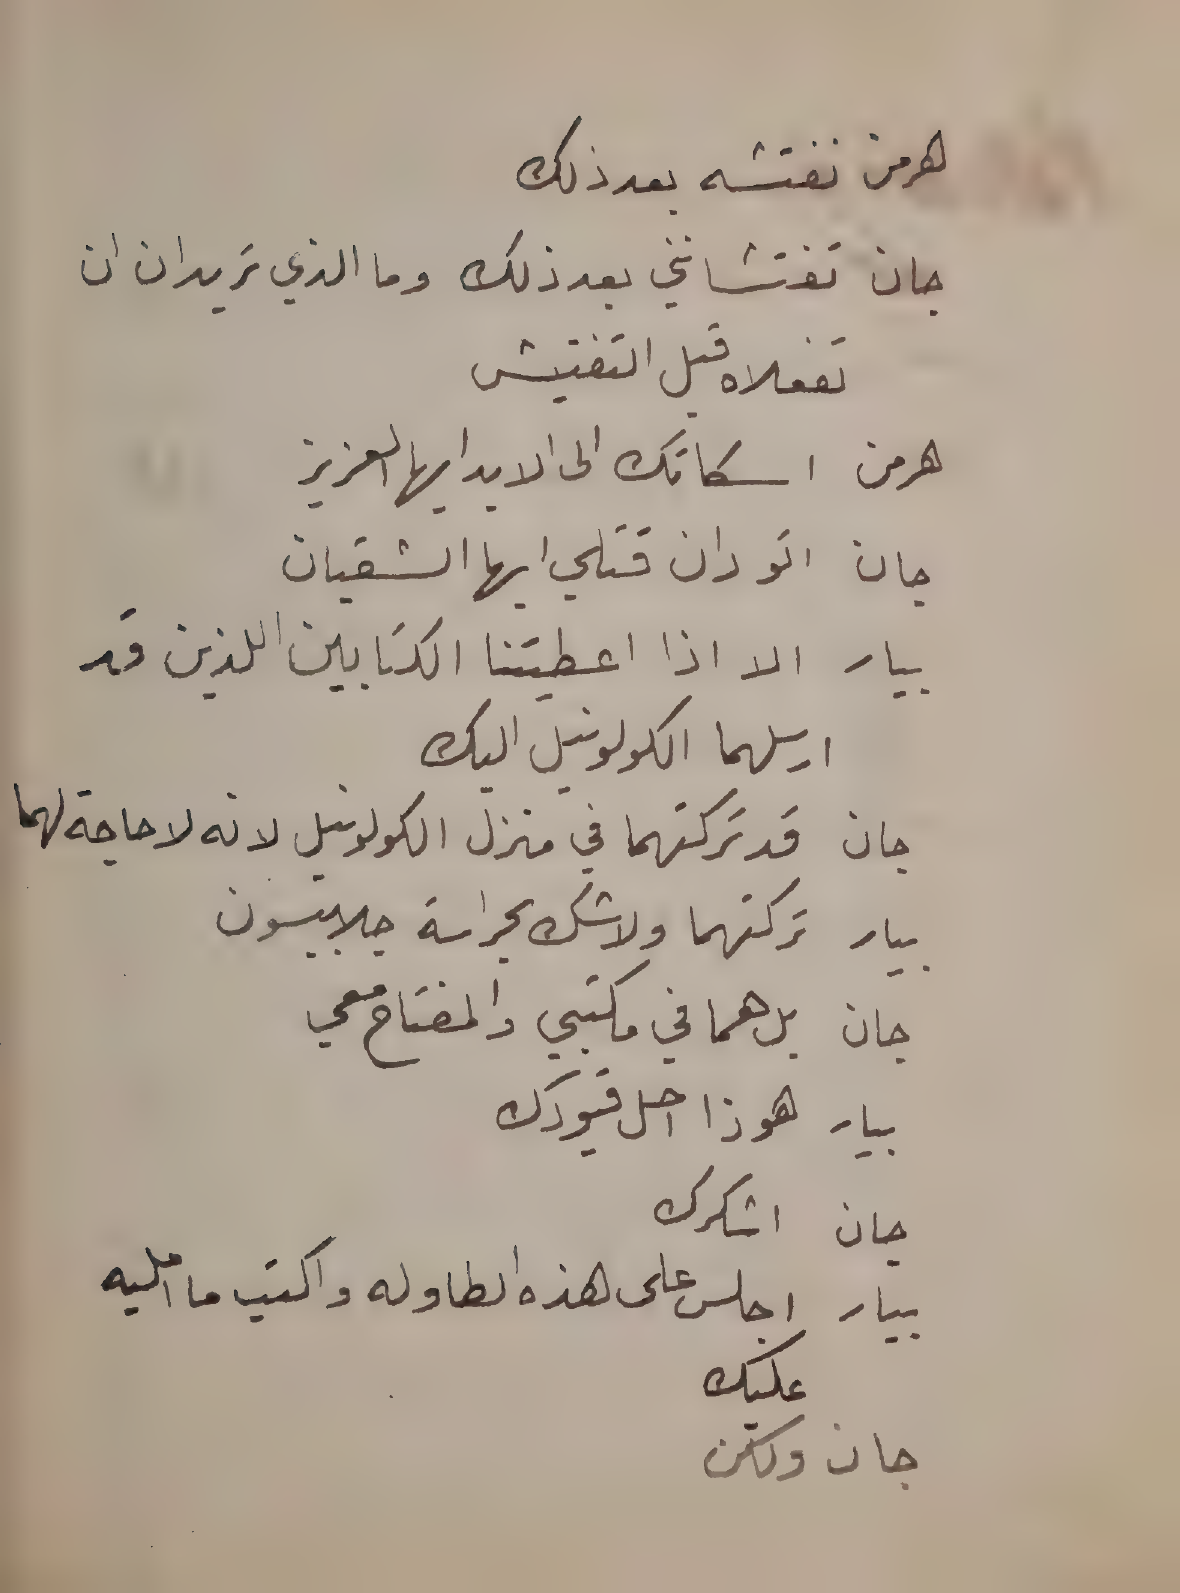 هرمن نفتشه بعد ذلك
جان تفتشانني بعد ذلك وما الذي تريدان ان
تفعلاه قبل التفتيش
هرمن اسكاتك الى الابد ايها العزيز
جان اتودان قتلي ايها الشقيان
بيار الا اذا اعطيتنا الكتابين اللذين قد
ارسلهما الكولونيل اليك
جان قد تركتهما في منزل الكولونيل لانه لا حاجة لهما
بيار تركتهما ولا شك بحراسة جلابيسون
جان بل هما في مكتبي والمفتاح معي
بيار هوذا احل قيودك
جان اشكرك
بيار اجلس على هذه الطاوله واكتب ما امليه
عليك
جان ولكن